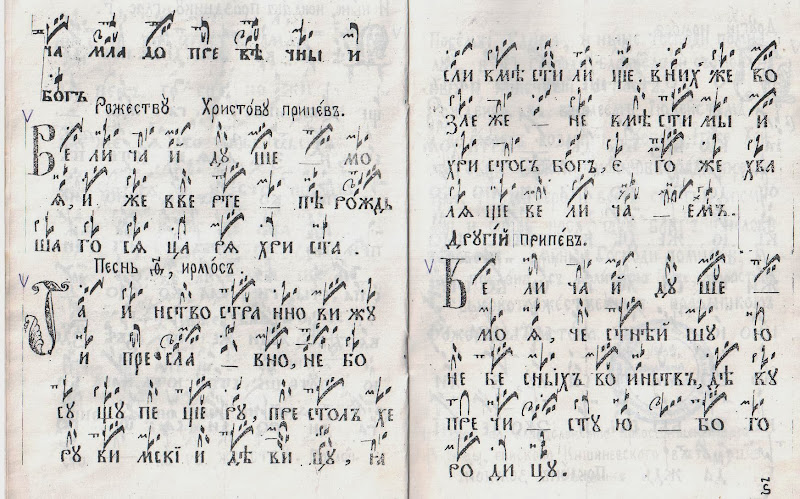 ЧА МЛА ДО ПРЕ ВѢ ЧНЫ И
БОГЪ
Рожествꙋ Христо́вꙋ припе́въ.
ВЕ ЛИ ЧА Й ДꙊ ШЕ _ МО
Ѧ И ЖЕ ВВЕ РТЕ _ ПѢ РОЖДЬ
ША ГО СѦ ЦА РѦ ХРИ СТА .
Песнь ѳ҃, ирмо́съ.
ТА _ И НСТВО СТРА ННО ВИ ЖꙊ
И ПРЕ СЛА _ ВНО, НЕ БО
СꙊ ЩꙊ ПЕ ЩЕ РꙊ, ПРЕ СТОЛЪ ХЕ
РꙊ ВИ МСКІ Й ДѢ ВИ ЦꙊ, ꙖА
СЛИ ВМѢ СТИ ЛИ ЩЕ. ВНИХ ЖЕ ВО
ЗЛЕ ЖЕ _ НЕ ВМѢ СТИ МЫ И
ХРИ СТОСЪ БОГЪ, Є ГО ЖЕ ХВА
ЛѦ ЩЕ ВЕ ЛИ ЧА _ ЕМЪ.
Дрꙋгі́й припе́въ.
ВЕ ЛИ ЧА Й ДꙊ ШЕ
МО Ѧ, ЧЕ СТНѢЙ ШꙊ Ю
НЕ БЕ СНЫХЪ ВО ИНСТВЪ, ДѢ ВꙊ
ПРЕ ЧИ _ СТꙊ Ю _ БО ГО
РО ДИ ЦꙊ.
ѕ҃